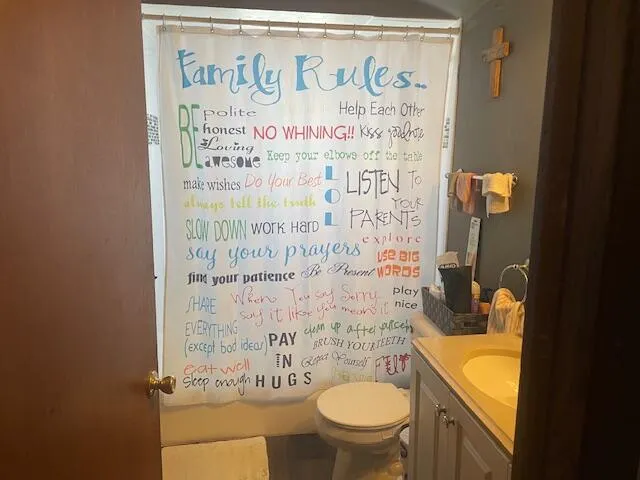 Family Rules..
BE polite
honest
Loving
awesome
Help Each Other
NO WHINING!! Kiss goodnight
Keep your elbows off the table
make wishes Do Your Best
LOL
LISTEN TO
YOUR
PARENTS
always tell the truth
SLOW DOWN WORK HARD
explore
say your prayers
USE BIG
WORDS
find your patience Be Present
play
nice
SHARE
EVERYTHING
(except bad ideas)
When You Say Sorry
say it like you mean it
PAY
IN
HUGS
clean up after yourself
BRUSH YOUR TEETH
Respect Yourself
eat well
sleep enough